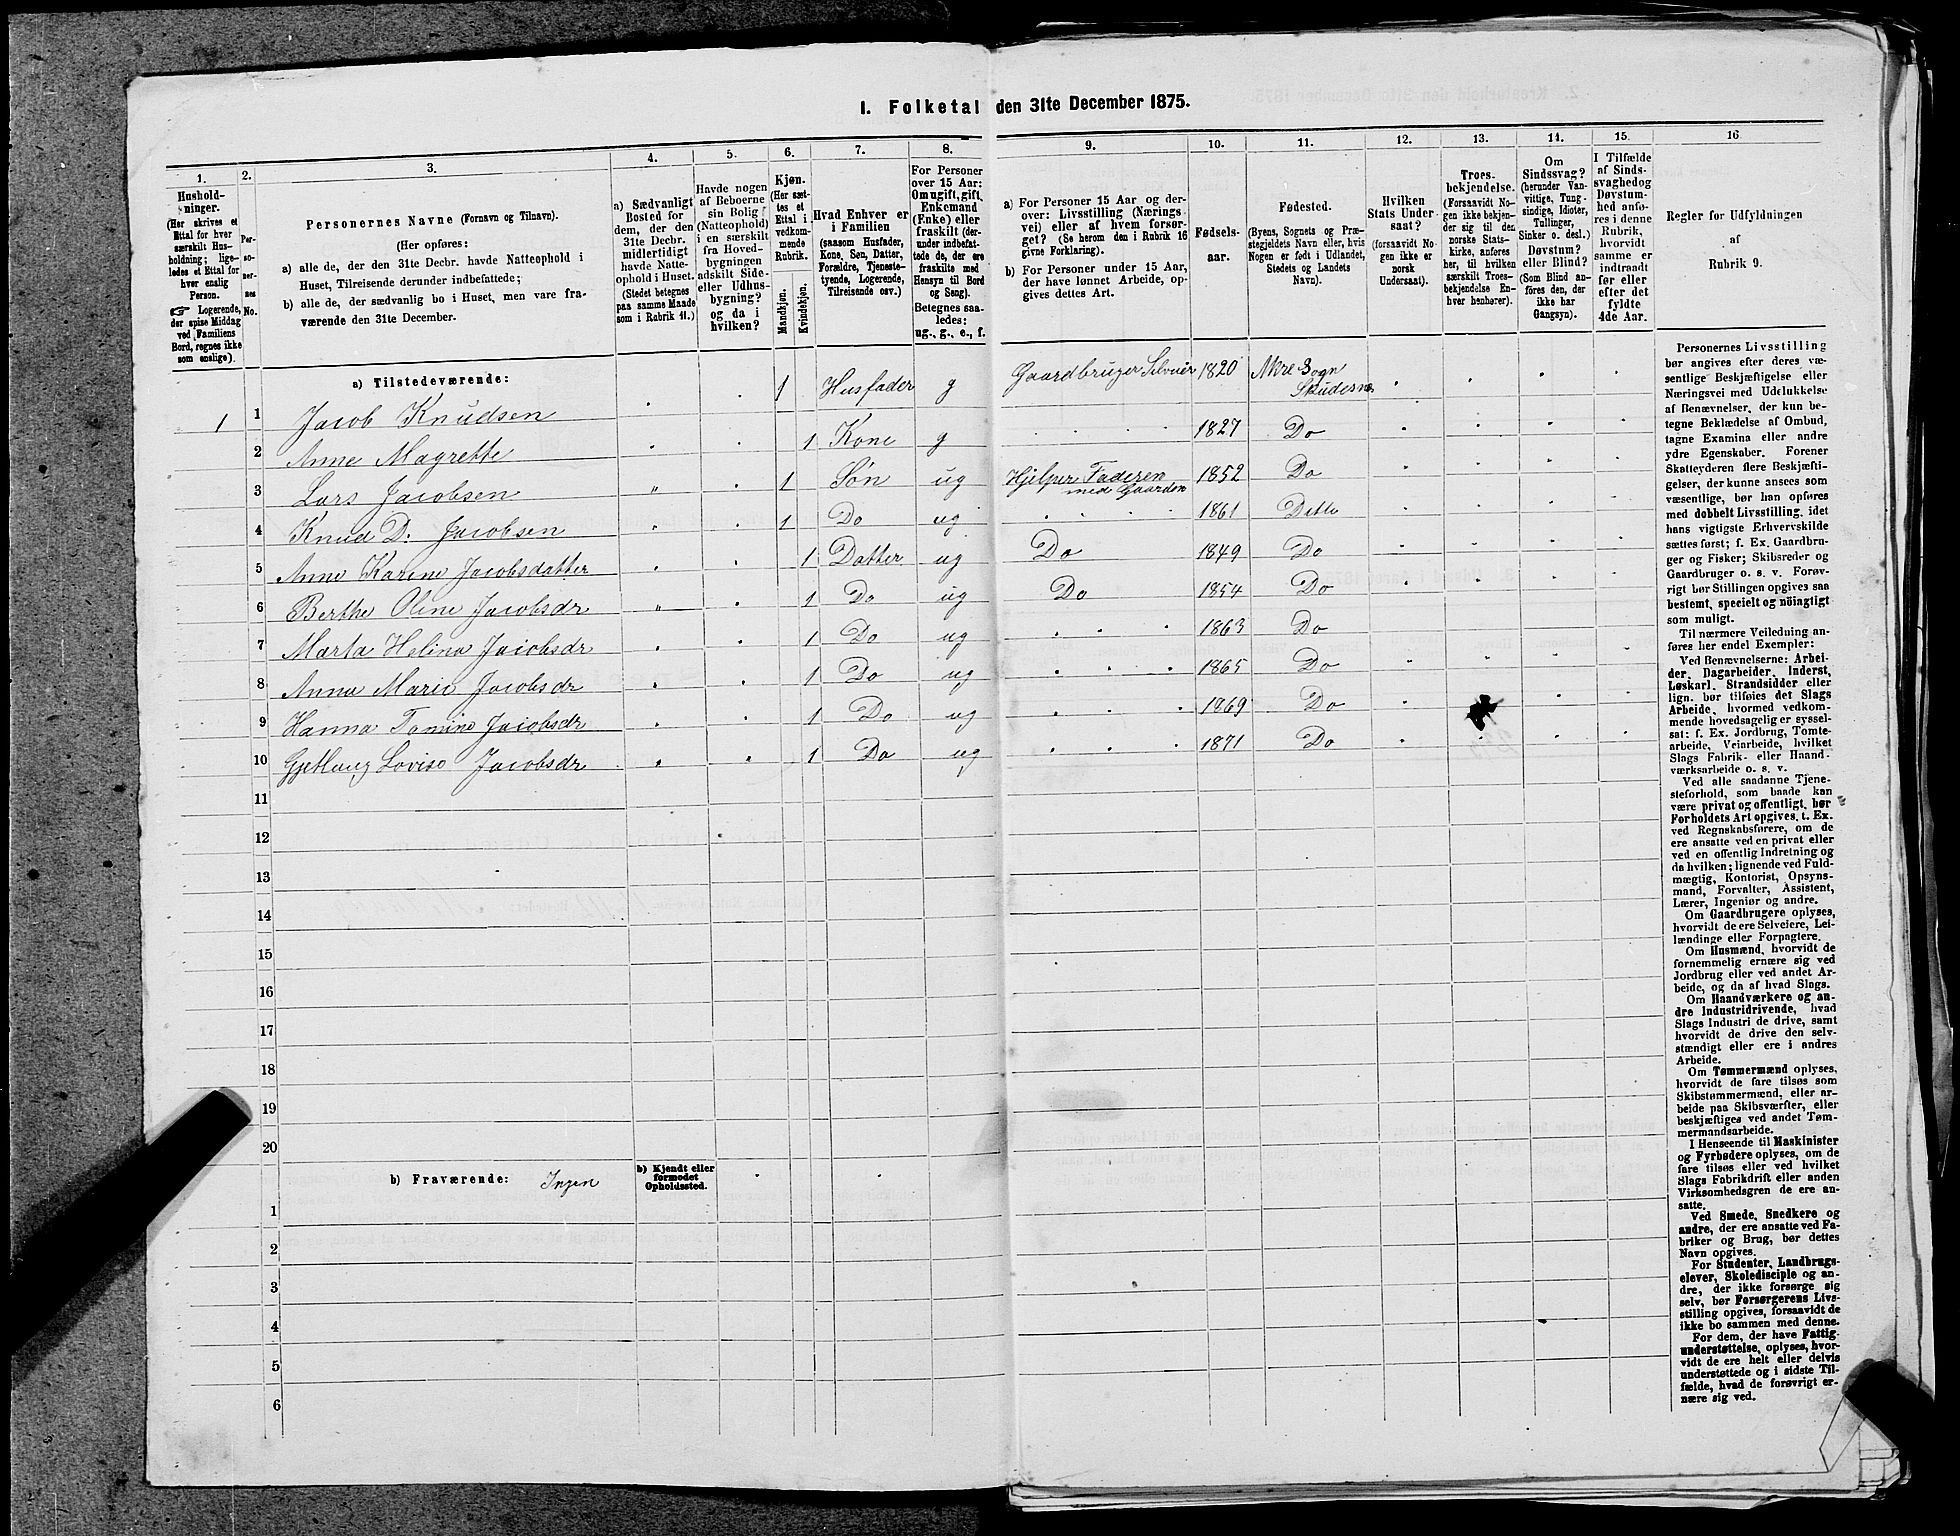 1. Folketal den 31te December 1875.
1. 2. 3. 4. 5. 6. 7. 8. 9. 10. 11. 12. 13. 14. 15. 16
Hushold-
ninger.
(Her skrives et
Ettal for hver
særskilt Hus-
holdning; lige-
ledes et Ettal for
hver enslig
Person.
☞ Logerende,
der spise Middag
ved Familiens
Bord, regnes ikke
som enslige).
Per-
so-
ner-
nes
No.
Personernes Navne (Fornavn og Tilnavn).
(Her opføres:
a) alle de, der den 31te Decbr. havde Natteophold i
Huset, Tilreisende derunder indbefattede;
b) alle de, der sædvanlig bo i Huset, men vare fra-
værende den 31te December.
a) Sædvanligt
Bosted for
dem, der den
31te Decbr.
midlertidigt
havde Natte-
ophold i Huset.
(Stedet betegnes
paa samme Maade
som i Rubrik 11.)
Havde nogen
af Beboerne
sin Bolig
(Natteophold)
i en særskilt
fra Hoved-
bygningen
adskilt Side-
eller Udhus-
bygning?
og da i
hvilken?
Kjøn.
(Her sæt-
tes et
Ettal i
vedkom-
mende
Rubrik.
Mandkjøn.
Kvindekjøn.
Hvad Enhver er
i Familien
(saasom Husfader,
Kone, Søn, Datter,
Forældre, Tjeneste-
tyende, Logerende,
Tilreisende osv.)
For Personer
over 15 Aar:
Om ugift, gift,
Enkemand
(Enke) eller
fraskilt (der-
under indbefat-
tede de, der ere
fraskilte med
Hensyn til Bord
og Seng).
Betegnes saa-
ledes:
ug., g., e., f.
a) For Personer 15 Aar og der-
over: Livsstilling (Nærings-
vei) eller af hvem forsør-
get? (Se herom den i Rubrik 16
givne Forklaring).
b) For Personer under 15 Aar,
der have lønnet Arbeide, op-
gives dettes Art.
Fødsels-
aar.
Fødested.
(Byens, Sognets og Præ-
stegjeldets Navn eller, hvis
Nogen er født i Udlandet,
Stedets og Landets
Navn).
Hvilken
Stats Under-
saat?
(forsaavidt No-
gen ikke er
norsk
Undersaat).
Troes-
bekjendelse.
(Forsaavidt No-
gen ikke bekjen-
der sig til den
norske Stats-
kirke, anføres
her, til hvilken
særskilt Troes-
bekjendelse En-
hver henhører).
Om
Sindssvag?
(herunder Van-
vittige, Tung-
sindige, Idioter,
Tullinger,
Sinker o. desl.)
Døvstum?
eller Blind?
(Som Blind an-
føres den, der
ikke har
Gangsyn).
I Tilfælde
af Sinds-
svaghed og
Døvstum-
hed anfø-
res i denne
Rubrik,
hvorvidt
samme er
indtraadt
før eller
efter det
fyldte
4de Aar.
Regler for Udfyldningen
af
Rubrik 9.
a) Tilstedeværende:
1 1 Jacob Knudsen 1 Husfader g Gaardbruger Selveier 1820 Akre Sogn
Skudesnes
2 Anne Magrette 1 Kone g 1827 Do
3 Lars Jacobsen " 1 Søn ug Hjelper Faderen
med Gaarden 1852 Do
4 Knud D. Jacobsen 1 Do ug 1861 Ditto
5 Anne Karine Jacobsdatter 1 Datter ug Do 1849 Do
6 Berthe Oline Jacobsdr " 1 Do ug Do 1854 Do
7 Marta Helina Jacobsdr 1 Do ug 1863 Do
8 Anna Marie Jacobsdr 1 Do ug 1865 Do
9 Hanna Tomine Jacobsdr 1 Do ug 1869 Do
10 Lovise Jacobsdr 1 Do ug 1871 Do
11
12
13
14
15
16
17
18
19
20
b) Fraværende: Ingen
b) Kjendt eller
formodet
Opholdssted.
1
2
3
4
5
6
Personernes Livsstilling
bør angives efter deres væ-
sentlige Beskjæftigelse eller
Næringsvei med Udelukkelse
af Benævnelser, der kun be-
tegne Beklædelse af Ombud,
tagne Examina eller andre
ydre Egenskaber. Forener
Skatteyderen flere Beskjæfti-
gelser, der kunne ansees som
væsentlige, bør han opføres
med dobbelt Livsstilling, idet
hans vigtigste Erhvervskilde
sættes først; f. Ex. Gaardbru-
ger og Fisker; Skibsreder og
Gaardbruger o. s. v. Forøv-
rigt bør Stillingen opgives saa
bestemt, specielt og nøiagtigt
som muligt.
Til nærmere Veiledning an-
føres her endel Exempler:
Ved Benævnelserne: Arbei-
der, Dagarbeider, Inderst,
Løskarl, Strandsidder eller
lign. bør tilføies det Slags
Arbeide, hvormed vedkom-
mende hovedsagelig er syssel-
sat: f. Ex. Jordbrug, Tomte-
arbeide, Veiarbeide, hvilket
Slags Fabrik- eller Haand-
værksarbeide o. s. v.
Ved alle saadanne Tjene-
steforhold, som baade kan
være privat og offentligt, bør
Forholdets Art opgives, t. Ex.
ved Regnskabsførere, om de
ere ansatte ved en privat eller
ved en offentlig Indretning og
da hvilken; lignende ved Fuld-
mægtig, Kontorist, Opsyns-
mand, Forvalter, Assistent,
Lærer, Ingeniør og andre.
Om Gaardbrugere oplyses,
hvorvidt de ere Selveiere, Lei-
lændinge eller Forpagtere.
Om Husmænd, hvorvidt de
fornemmelig ernære sig ved
Jordbrug eller ved andet Ar-
beide, og da af hvad Slags.
Om Haandværkere og an-
dre Industridrivende, hvad
Slags Industri de drive, samt
hvorvidt de drive den selv-
stændigt eller ere i andres
Arbeide.
Om Tømmermænd oplyses,
hvorvidt de fare tilsøs som
Skibstømmermænd, eller ar-
beide paa Skibsværfter, eller
beskjæftiges ved andet Tøm-
mermandsarbeide.
I Henseende til Maskinister
og Fyrbødere oplyses, om de
fare tilsøs eller ved hvilket
Slags Fabrikdrift eller anden
Virksomhedsgren de ere an-
satte.
Ved Smede, Snedkere og
andre, der ere ansatte ved Fa-
briker og Brug, bør dettes
Navn opgives.
For Studenter, Landbrugs-
elever, Skoledisciple og an-
dre, der ikke forsørge sig
selv, bør Forsørgerens Livs-
stilling opgives, forsaavidt de
ikke bo sammen med denne.
For dem, der have Fattig-
understøttelse, oplyses, hvor-
vidt de ere helt eller delvis
understøttede og i sidste Til-
fælde, hvad de forøvrigt er-
nære sig ved.